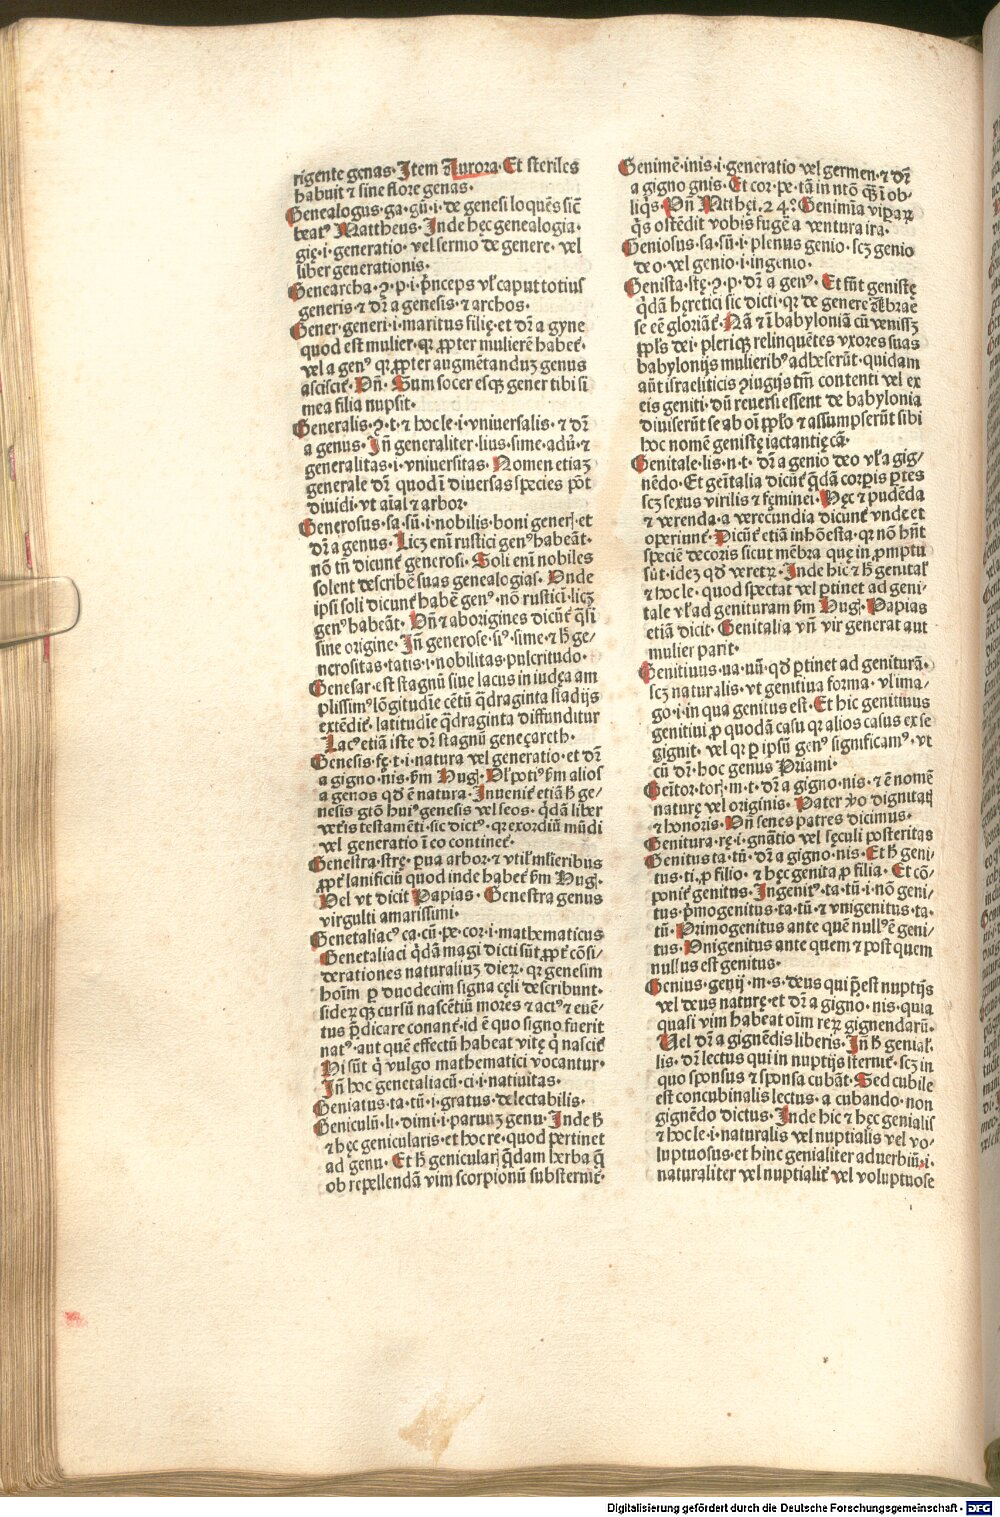 rigente genas· Item Aurora· Et steriles
habuit ⁊ sine flore genas·
Genealogus·ga·gū·i·de genesi loquēs sic̄
beatꝰ Mattheus· Inde hęc genealogia·
gię·i·generatio· vel sermo de genere· vel
liber generationis·
Genearcha·ꝛ·p·i·p̄nceps vl' caput totius
generis ⁊ dr̄ a genesis·⁊ archos·
Gener·generi·i·maritus filię·et dr̄ a gyne
quod est mulier·qꝛ ꝓpter mulierē habet᷑·
vel a genꝰ qꝛ ꝓpter augmētanduꝫ genus
asciscit᷑· Vn̄· Sum socer esqꝫ gener tibi si
mea filia nupsit·
Generalis·ꝛ·t·⁊ hoc le·i·vniuersalis·⁊ dr̄
a genus· Jn̄ generaliter·lius·sime·adū·⁊
generalitas·i·vniuersitas· Nomen etiaꝫ
generale dr̄ quod ī diuersas species pōt
diuidi·vt aīal ⁊ arbor·
Generosus·sa·sū·i·nobilis·boni generꝭ·et
dr̄ a genus· Licꝫ enī rustici genꝰ habeāt·
nō tn̄ dicunt᷑ generosi· Soli enī nobiles
solent describē suas genealogias· Vnde
ipsi soli dicunt᷑ habē genꝰ·nō rustici·licꝫ
genꝰ habeāt· Vn̄ ⁊ aborigines dicūt᷑ q̄si
sine origine· Jn̄ generose·siꝰ·sime·⁊ h̄ ge-
nerositas·tatis·i·nobilitas·pulcritudo·
Genesar·est stagnū siue lacus in iudęa am
plissimꝰ lōgitudīe cētū q̄draginta stadijs
extēdit᷑·latitudīe q̄draginta diffunditur
Lacꝰ etiā iste dr̄ stagnū geneçareth·
Genesis·sę·t·i·natura vel generatio·et dr̄
a gigno·nis·s̄m Hugꝭ· Vl' potiꝰ s̄m alios
a genos qd̄ ē natura· Inuenit᷑ etiā h̄ ge-
nesis gtō huiꝰ genesis vel seos· q̄dā liber
vetis testamēti·sic dictꝰ·qꝛ exordiū mūdi
vel generatio ī eo continet᷑·
Genestra·strę· ꝑua arbor·⁊ vtil' mlieribus
ꝓpt᷑ lanificiū quod inde habet᷑ s̄m Hugꝭ·
Vel vt dicit Papias· Genestra genus
virgulti amarissimi·
Genetaliacꝰ ca·cū·pe·cor·i·mathematicus
Genetaliaci q̄dā magi dicti sūt ꝓpt᷑ cōsi-
derationes naturaliuꝫ dieꝝ·qꝛ genesim
hoīm ꝑ duodecim signa cęli describunt·
sideꝝqꝫ cursū nascētiū mores ⁊ actꝰ ⁊ euē-
tus p̄dicare conant᷑·id ē quo signo fuerit
natꝰ·aut quē effectū habeat vitę q̄ nascit᷑
Hi sūt q̄ vulgo mathematici vocantur·
Jn̄ hoc genetaliacū·ci·i·natiuitas·
Geniatus·ta·tū·i·gratus·delectabilis·
Geniculū·li·dimi·i·paruuꝫ genu· Inde h̄
⁊ hęc genicularis·et hoc re·quod pertinet
ad genu· Et h̄ genicularꝭ q̄dam herba q̄
ob repellendā vim scorpionū substernit᷑·
Genimē·inis·i·generatio vel germen·⁊ dr̄
a gigno gnis· Et cor·pe·tā in ntō qꝫ ī ob-
liq̄s· Vn̄ Matthęi·24·c̊ Genimīa viꝑaꝝ
q̄s ostēdit vobis fugē a ventura ira·
Geniosus·sa·sū·i·plenus genio·scꝫ genio
deo·vel genio·i·ingenio·
Genista·stę·ꝛ·p·dr̄ a genꝰ· Et sūt genistę
q̄dā hęretici sic dicti·qꝛ de genere Abrae
se eē gloriāt᷑· Nā ⁊ ī babyloniā cū venissꝫ
ppl's dei·pleriqꝫ relinquētes vxores suas
babylonijs mulieribꝰ adheserūt·quidam
aūt israeliticis ꝯiugijs tm̄ contenti vel ex
eis geniti·dū reuersi essent de babylonia
diuiserūt se ab oī ppl'o ⁊ assumpserūt sibi
hoc nomē genistę iactantię cā·
Genitale·lis·n·t· dr̄ a genio deo vl' a gig-
nēdo· Et gēitalia dicūt᷑ q̄dā corpis ꝑtes
scꝫ sexus virilis ⁊ fęminei· Hęc ⁊ pudēda
⁊ verenda·a verecundia dicunt᷑ vnde et
operiunt᷑· Dicūt᷑ etiā inhōesta·qꝛ nō hn̄t
speciē decoris sicut mēbra quę in ꝓmptu
sūt·idez qd̄ veretꝝ· Inde hic ⁊ h̄ genital'
⁊ hoc le·quod spectat vel ꝑtinet ad geni-
tale vl' ad genituram s̄m Hugꝭ· Papias
etiā dicit· Genitalia vn̄ vir generat aut
mulier parit·
Genitiuus·ua·uū·qd̄ ꝑtinet ad geniturā·
scꝫ naturalis·vt genitiua forma·vl' ima-
go·i·in qua genitus est· Et hic genitiuus
genitiui ꝓ quodā casu qꝛ alios casus ex se
gignit·vel qꝛ ꝑ ipsū genꝰ significamꝰ·vt
cū dr̄·hoc genus Priami·
Geītor·torꝭ·m·t·dr̄ a gigno·nis·⁊ ē nomē
naturę vel originis· Pater v̊o dignitatꝭ
⁊ honoris· Vn̄ senes patres dicimus·
Genitura·rę·i·gnātio vel sęculi posteritas
Genitus·ta·tū·dr̄ a gigno·nis· Et h̄ geni-
tus·ti·ꝓ filio·⁊ hęc genita ꝓ filia· Et cō-
ponit᷑ genitus· Ingenitꝰ·ta·tū·i·nō geni-
tus·p̄mogenitus·ta·tū·⁊ vnigenitus·ta·
tū· Primogenitus ante quē nullꝰ ē geni-
tus· Vnigenitus ante quem ⁊ post quem
nullus est genitus·
Genius·genij·m·s·deus qui p̄est nuptijs
vel deus naturę·et dr̄ a gigno·nis·quia
quasi vim habeat oīm reꝝ gignendarū·
Vel dr̄ a gignēdis liberis· Jn̄ h̄ genial'·
lis·dr̄ lectus qui in nuptijs sternit᷑·scꝫ in
quo sponsus ⁊ sponsa cubāt· Sed cubile
est concubinalis lectus·a cubando·non
gignēdo dictus· Inde hic ⁊ hęc genialis
⁊ hoc le·i·naturalis vel nuptialis vel vo-
luptuosus·et hinc genialiter aduerbiū·i·
naturaliter vel nuptialit᷑ vel voluptuose
Digitalisierung gefördert durch die Deutsche Forschungsgemeinschaft - DFG